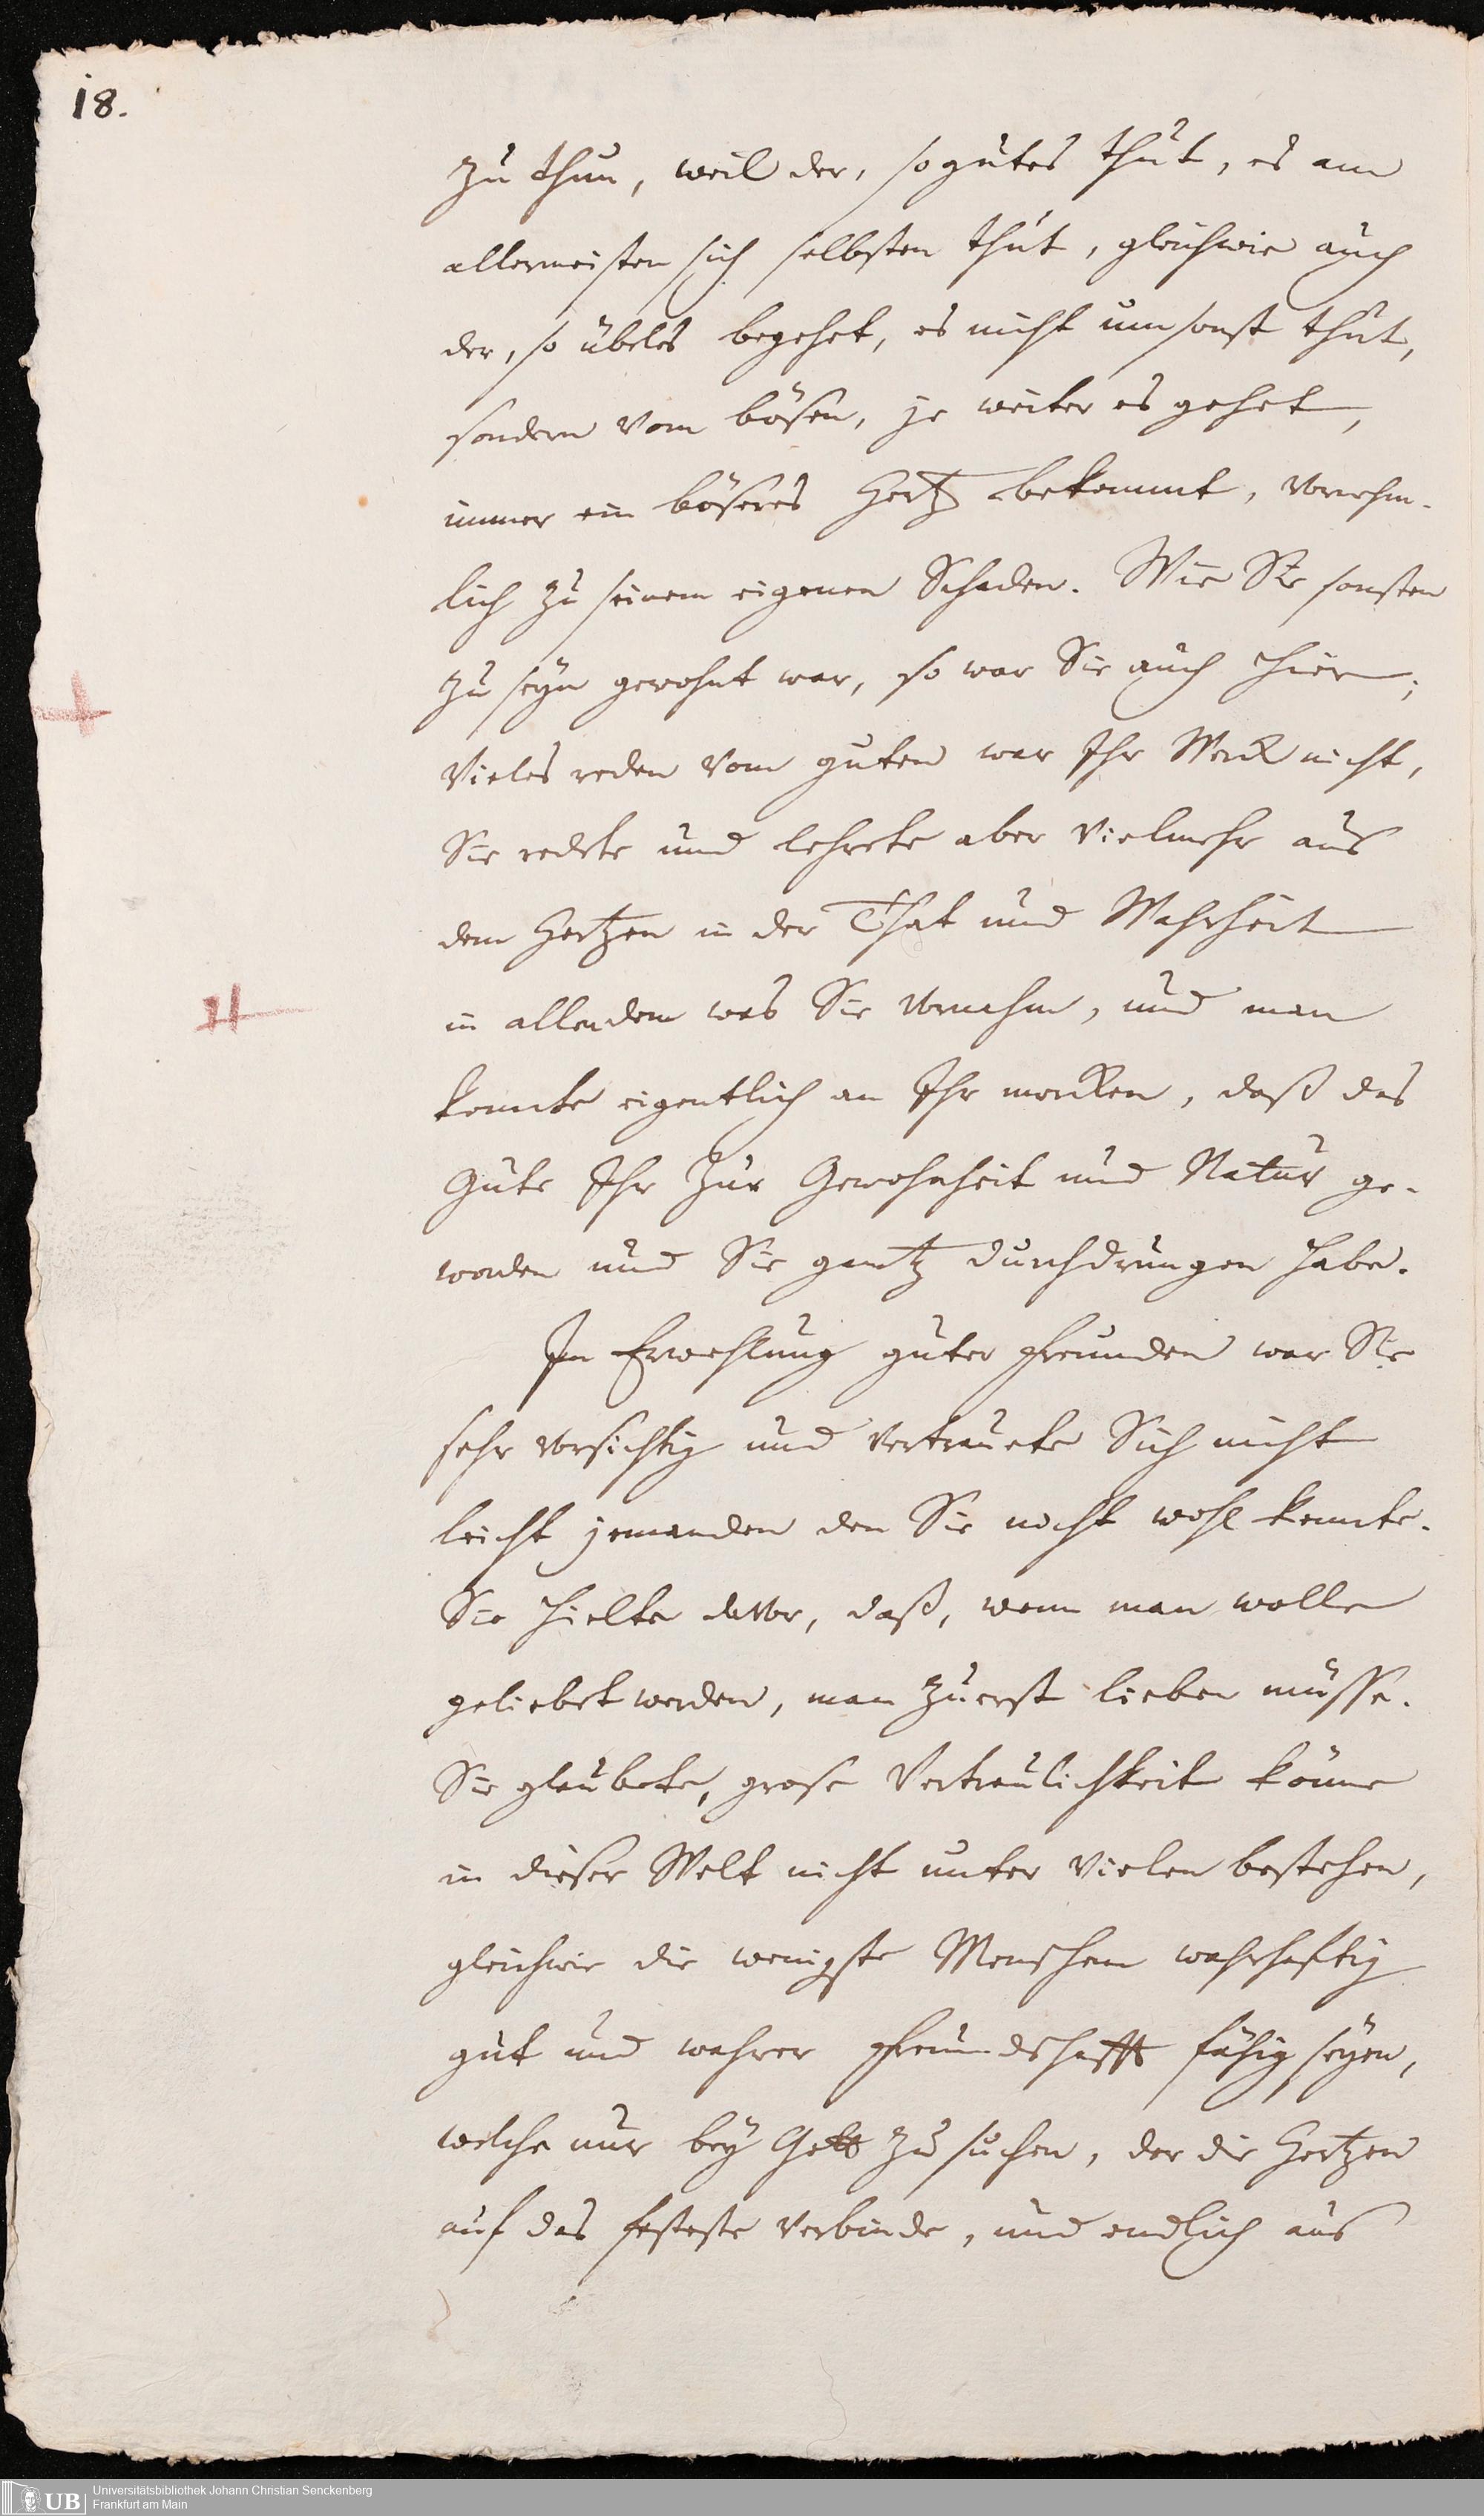 18.
zu thun, weil der, so gutes thut, es am
allermeisten sich selbsten thut, gleichwie auch
der, so übeles begehet, es nicht umsonst thut,
sondern vom bösen, je weiter es gehet,
immer ein böseres Hertz bekommt, vornehm-
lich zu seinem eigenen Schaden. Wie Sie sonsten
zu seyn gewohnt war, so war Sie auch hier;
Vieles reden vom guten war Ihr Werck nicht,
Sie redete und lehrete aber vielmehr aus
dem Hertzen in der That und Wahrheit
in allendem was Sie vornahm, und man
konnte eigentlich an Ihr mercken, daß das
Gute Ihr zur Gewohnheit und Natur ge-
worden und Sie gantz durchdrungen habe.
In Erwehlung guter Freunden war Sie
sehr vorsichtig und vertrauete Sich nicht
leicht jemanden den Sie nicht wohl kennte.
Sie hielte davor, daß, wenn man wolle
geliebet werden, man zuerst lieben müsse.
Sie glaubete, grose Vertraulichkeit könne
in dieser Welt nicht unter vielen bestehen,
gleichwie die wenigste Menschen wahrhafftig
gut und wahrer Freundschafft fähig seyen,
welche nur bey Gott zu suchen, der die Hertzen
auf das festeste verbinde, und endlich aus
UB
Universitätsbibliothek Johann Christian Senckenberg
Frankfurt am Main